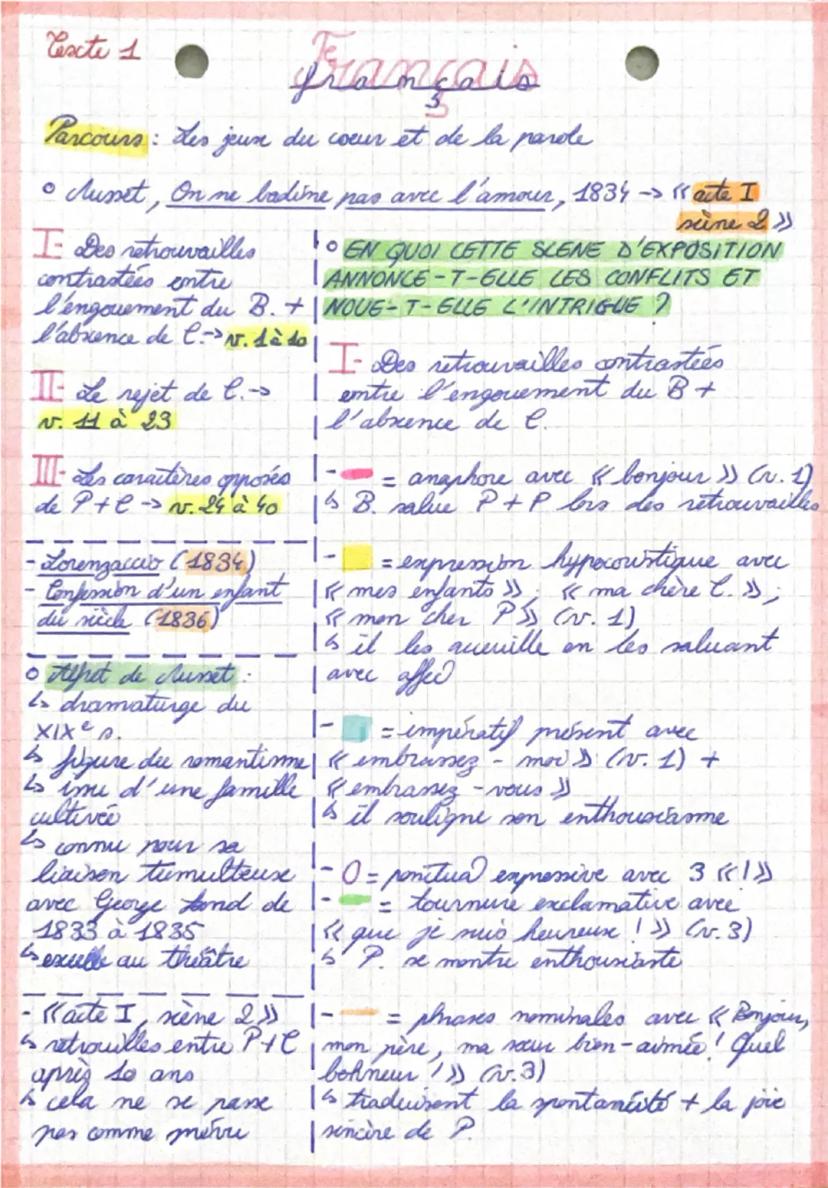 Texte 1
Français
français
Parcours : Les jeux du coeur et de la parole
o Musset, On ne badine pas avec l'amour, 1834 -> « acte I
scène 2 »
I- Des retrouvailles
contrastées entre
l'engouement du B. +
l'absence de C. -> v. 1 à 10
II- Le rejet de C. ->
v. 11 à 23
III- Les caractères opposés
de P + C -> v. 24 à 40
- Lorenzaccio (1834)
- Confession d'un enfant
du siècle (1836)
o Alfred de Musset :
↳ dramaturge du
XIXe s.
↳ figure du romantisme
↳ issu d'une famille
cultivée
↳ connu pour sa
liaison tumulteuse
avec George Sand de
1833 à 1835
↳ excelle au théâtre
- « acte I, scène 2 »
↳ retrouilles entre P + C
après 10 ans
↳ cela ne se passe
pas comme prévu
o EN QUOI CETTE SCENE D'EXPOSITION
ANNONCE-T-ELLE LES CONFLITS ET
NOUE-T-ELLE L'INTRIGUE ?
I- Des retrouvailles contrastées
entre l'engouement du B +
l'absence de C.
- = anaphore avec « bonjour » (v. 1)
↳ B. salue P + P lors des retrouvailles
- = expression hypocoristique avec
« mes enfants » ; « ma chère C. » ;
« mon cher P » (v. 1)
↳ il les accueille en les saluant
avec affec)
- = impératif présent avec
« embrassez-moi » (v. 1) +
« embrassez-vous »
↳ il souligne son enthousiasme
- O = ponctua) expressive avec 3 « ! »
- = tournure exclamative avec
« que je suis heureux ! » (v. 3)
↳ P. se montre enthousiaste
- = phrases nominales avec « Bonjour,
mon père, ma sœur bien-aimée ! Quel
bohneur ! » (v. 3)
↳ traduisent la spontanéité + la joie
sincère de P.